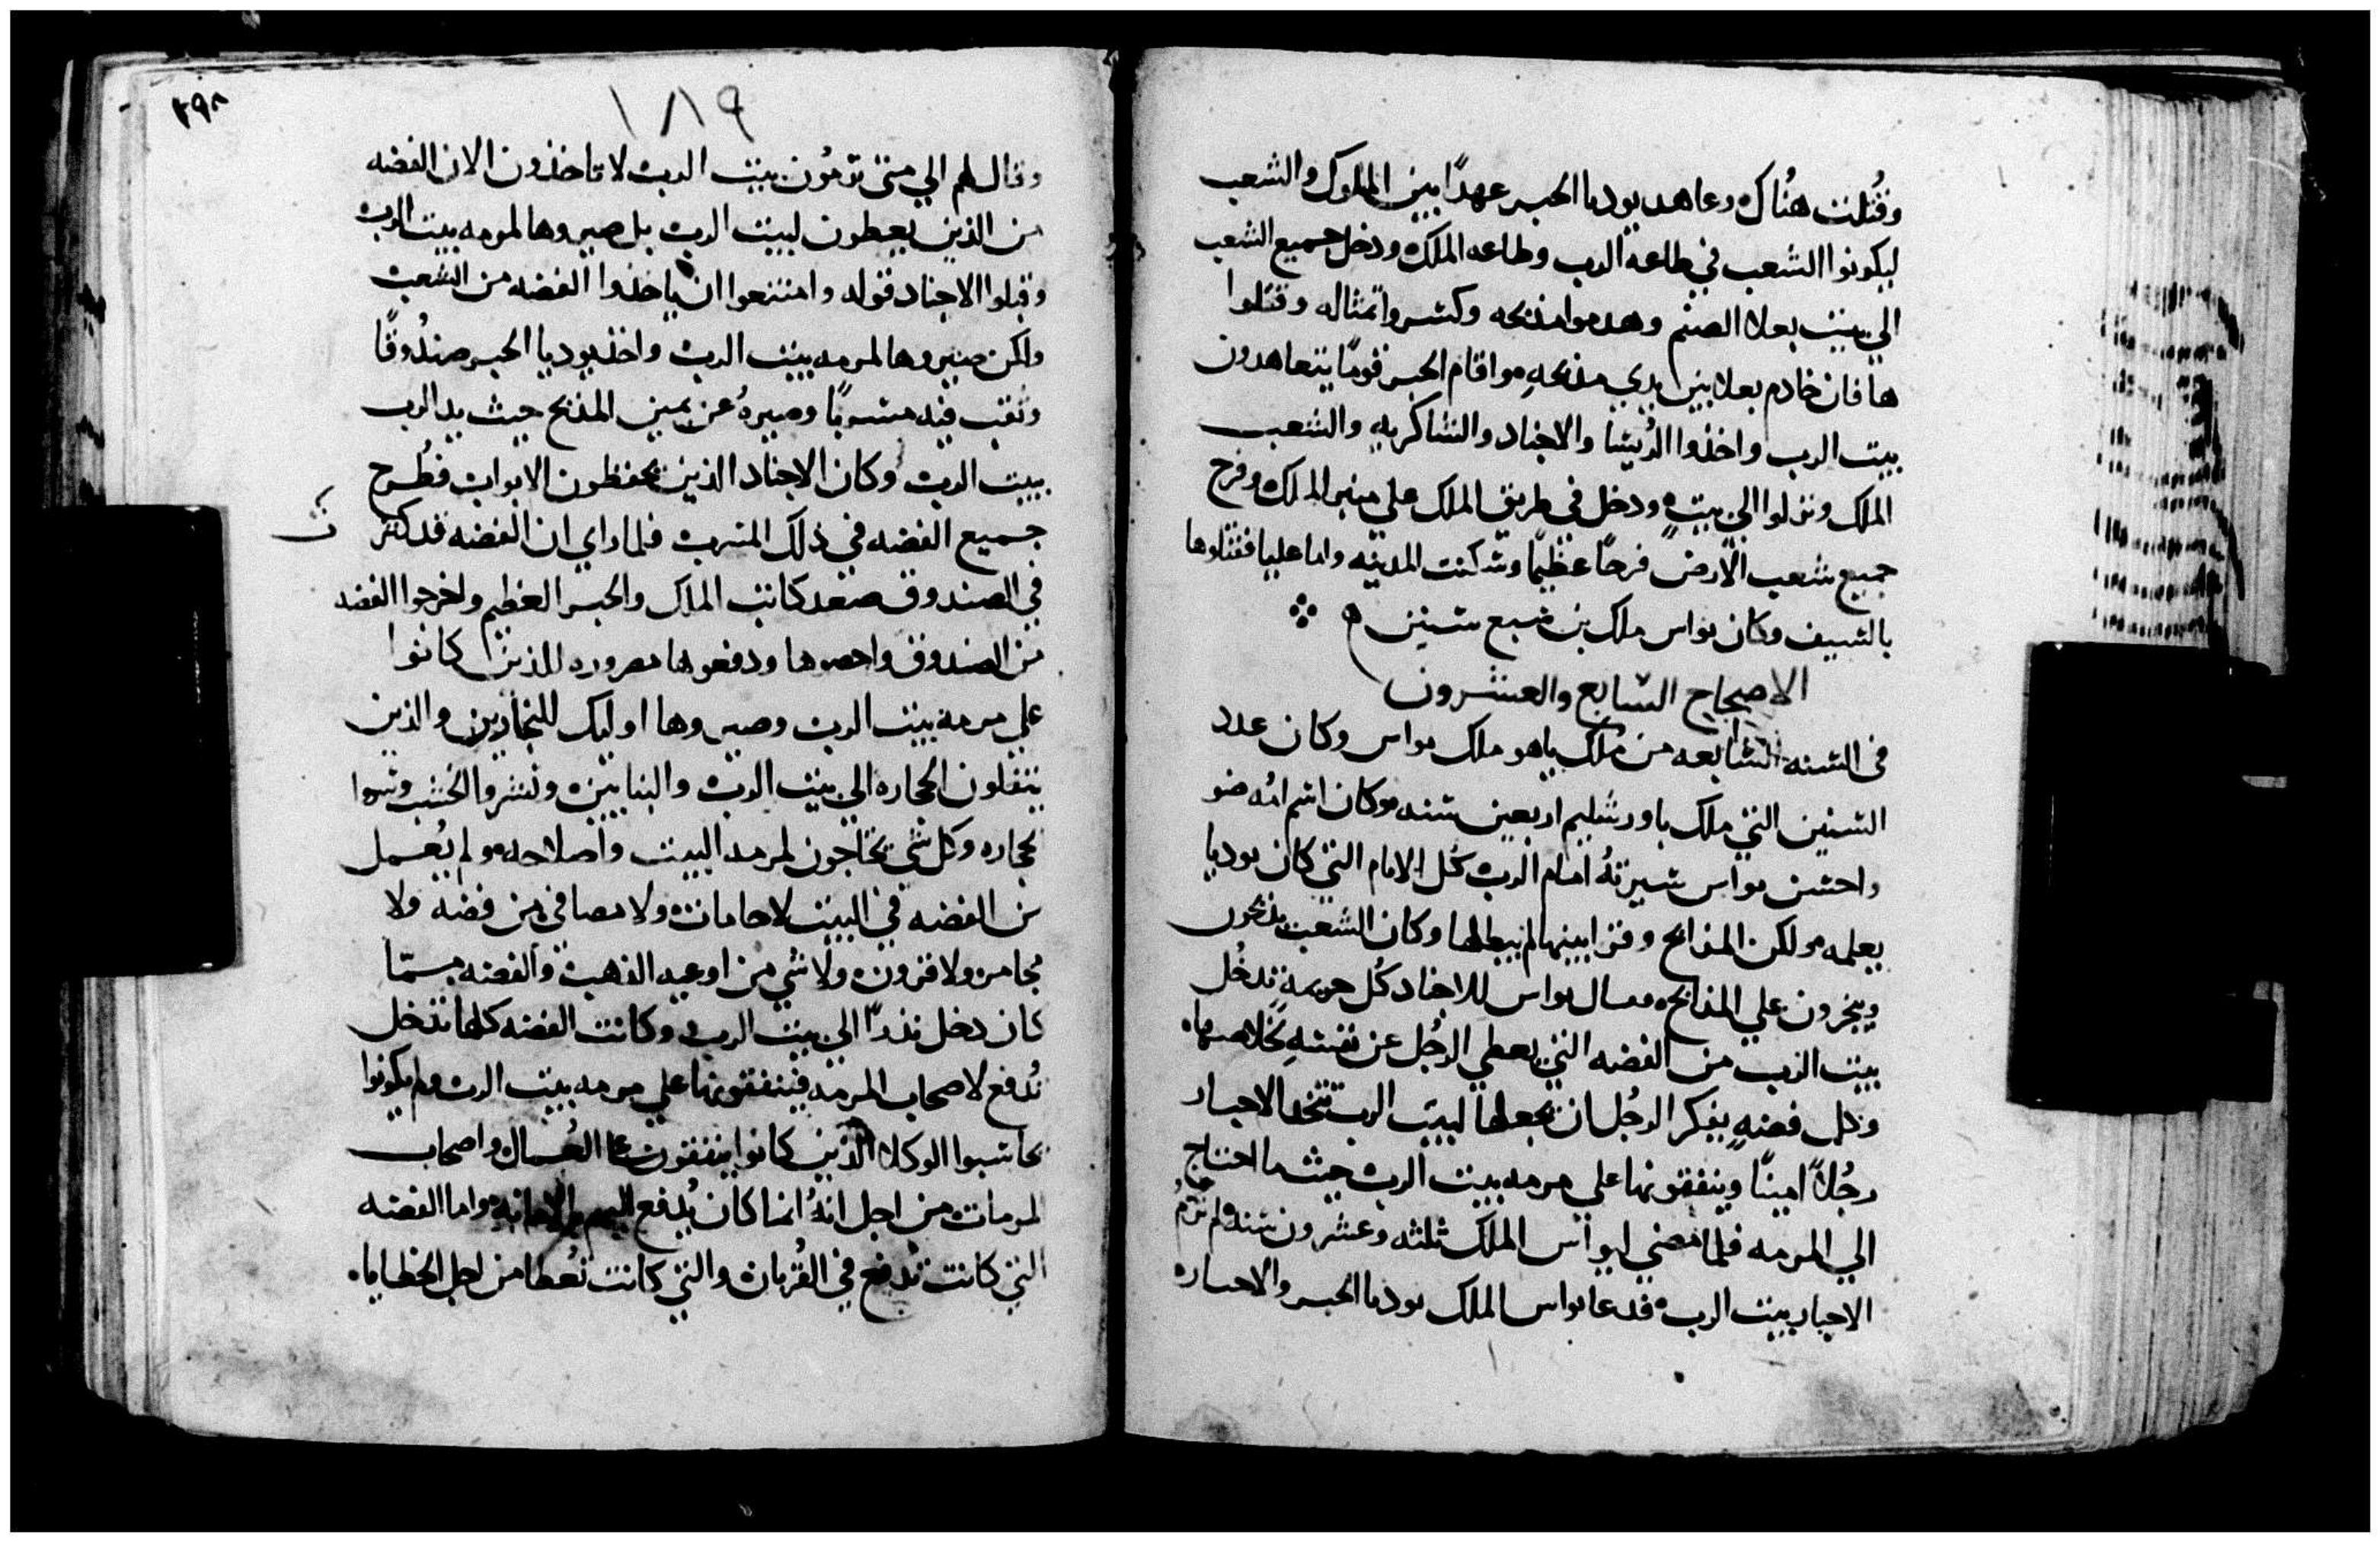 وقُتلت هُناك وعاهد يوديا الحبر عهدًا بين الملوك والشعب
ليكونوا الشعب في طاعه الرب وطاعه الملك ودخل جميع الشعب
الي بيت بعلا الصنم وهدموا مذبحه وكسروا تمثاله وقتلوا
هافان خادم بعلا بين يدي مذبحهِ واقام الحبر قومًا يتعاهدون
بيت الرب واخذوا الرُيسا والاجناد والشاكريه والشعب
الملك ونزلوا الي بيتهِ ودخل في طريق الملك علي منبر الملك وفرح
جميع شعب الارض فرحًا عظيمًا وسكنت المدينه واما عليا فقتلوها
بالسيف وكان يواس ملك بن سبع سنين
الاصحاح السابع والعشرون
في السنه السابعه من مُلك ياهو ملك يواس وكان عدد
السنين التي ملك باورشليم اربعين سنه وكان اسم امُه ضو
واحسن يواس سيرتهُ امام الرب كل الايام التي كان يوديا
يعلمه ولكن المذابح وقرابينها لم يبطلها وكان الشعب يذبحون
ويبخرون علي المذابح وسال يواس للاجناد كُل حريمة تدخُل
بيت الرب من الفضه التي يعطي الرجُل عن نفسهِ خلاصها
وكل فضهٍ يفكر الرجُل ان يجعلها لبيت الرب تتخد الاحبار
رجُلاً امينًا وينفقونها علي مرمه بيت الرب حيث ما احتاج
الي المرمه فلما مضي ليواس الملك ثلثه وعشرون سنه ولم ترمُ
الاحبار بيت الرب فدعا يواس الملك يوديا الحبر والاحبار
٢٩٨
١٨٩
وقال لهم الي متي ترمُون بيت الرب لا تاخذون الان الفضه
من الذين يعطون لبيت الرب بل صيروها لمرمه بيت الرب
وقبلوا الاجناد قوله وامتنعوا ان ياخذوا الفضه من الشعب
ولكن صيروها لمرمه بيت الرب واخذ يوديا الحبر صندُوقًا
وثقب فيه مسربًا وصيرهُ عن يمين المذبح حيث يد الرب
ببيت الرب وكان الاجناد الذين يحفظون الابواب فطُرح
جميع الفضه في ذلك المسرب فلما راي ان الفضه قد كثر ت
في الصندوق صعد كاتب الملك والحبر العظيم واخرجوا الفضه
من الصندوق واحصوها ودفعوها مصروره للذين كانوا
علي مرمة بيت الرب وصيروها اوليك للنجارين والذين
ينقلون الحجاره الي بيت الرب والبنايين ونشروا الخشب
حجاره وكل شي يحتاجون لمرمه البيت واصلاحه ولم يُعمل
من الفضه في البيت لاجامات ولا مصافي من فضه ولا
مجامر ولا قرون ولا شي من اوعيه الذهب والفضه مسمّا
كان دخل نذرًا الي بيت الرب وكانت الفضه كلها تدخل
تُدفع لاصحاب المرمه فينفقونها علي مرمه بيت الرب ولم يكونوا
يحاسبوا الوكلا الذين كانوا ينفقون علي العُمال واصحاب
المرمات من اجل انهُ انما كان يُدفع اليهم بالامانه واما الفضه
التي كانت تدفع في القُربان والتي كانت تُعطا من اجل الخطايا